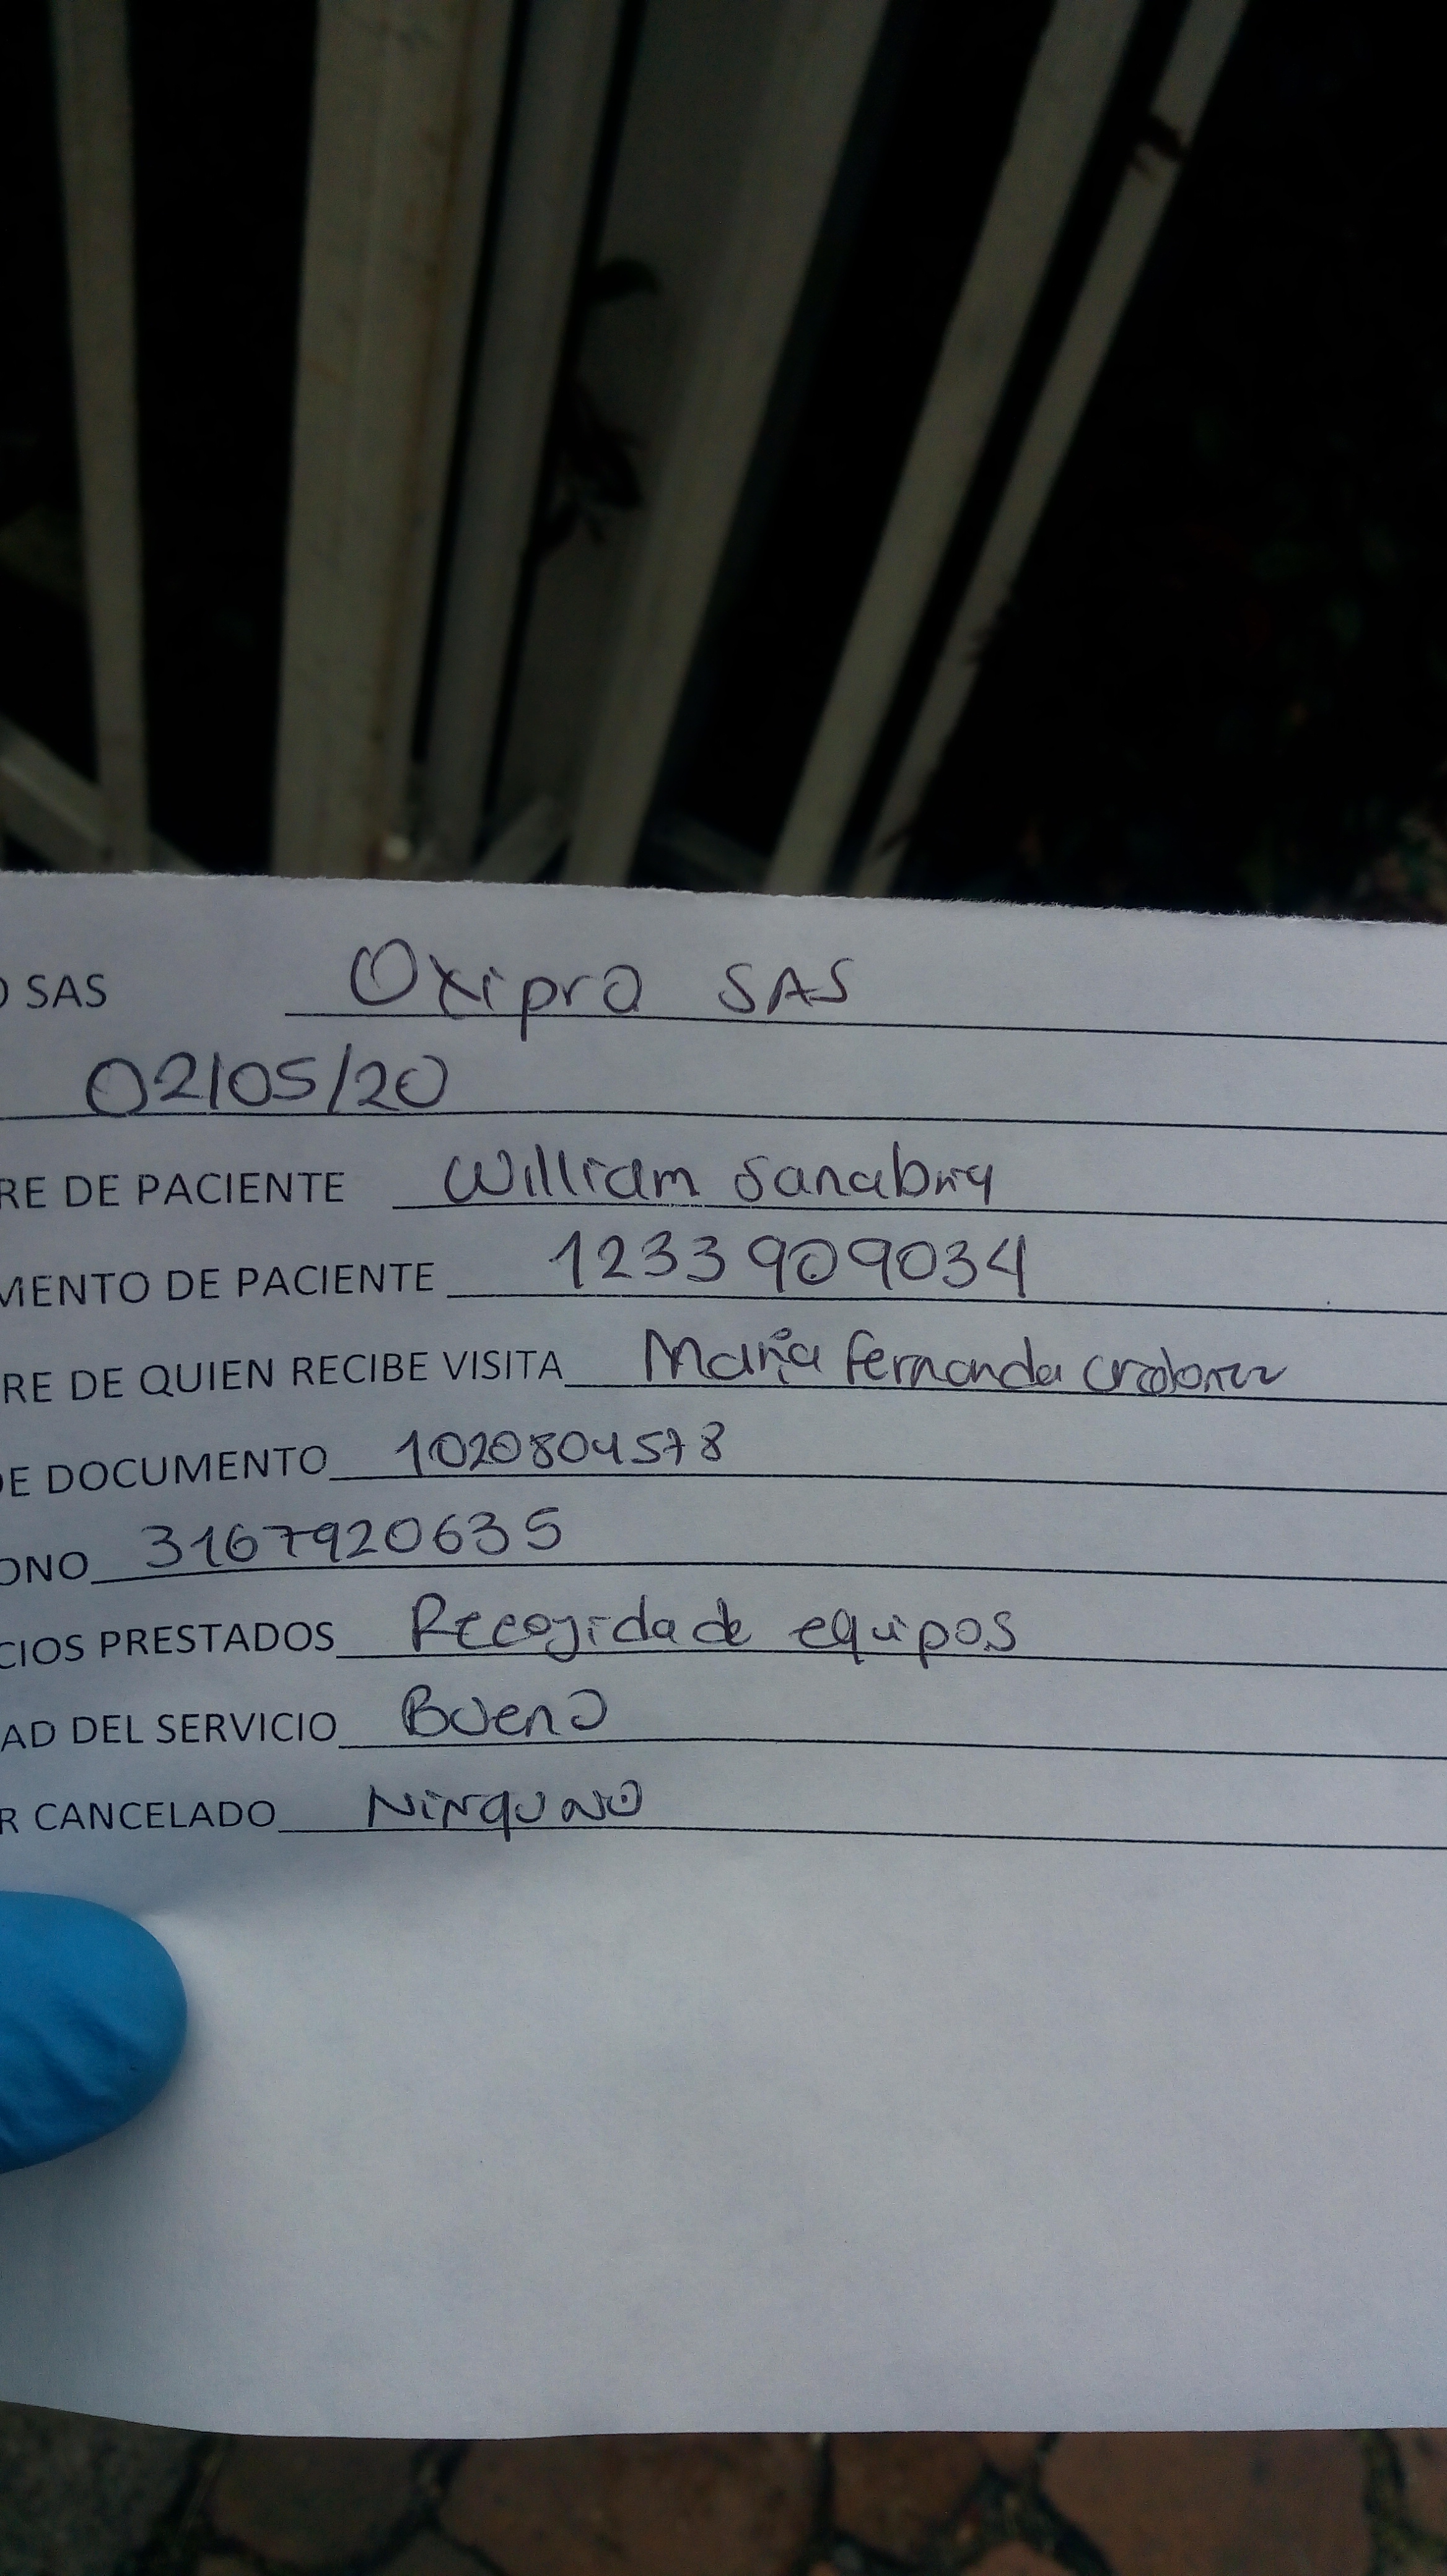 O SAS Oxipro SAS
02/05/20
RE DE PACIENTE William Sanabria
MENTO DE PACIENTE 1233909034
RE DE QUIEN RECIBE VISITA Maria Fernanda
DE DOCUMENTO 1020804578
ONO 3167920635
CIOS PRESTADOS Recogida de equipos
AD DEL SERVICIO Bueno
R CANCELADO Ninguno